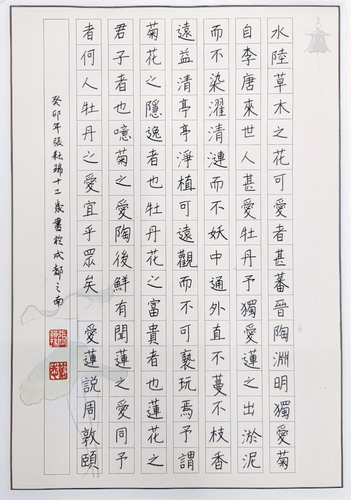 水陸草木之花可愛者甚蕃晉陶淵明獨愛菊
自李唐來世人甚愛牡丹予獨愛蓮之出淤泥
而不染濯清漣而不妖中通外直不蔓不枝香
遠益清亭亭淨植可遠觀而不可褻玩焉予謂
菊花之隱逸者也牡丹花之富貴者也蓮花之
君子者也噫菊之愛陶後鮮有聞蓮之愛同予
者何人牡丹之愛宜乎眾矣 愛蓮説周敦頤
癸卯年張耘十二歲書於成都之南